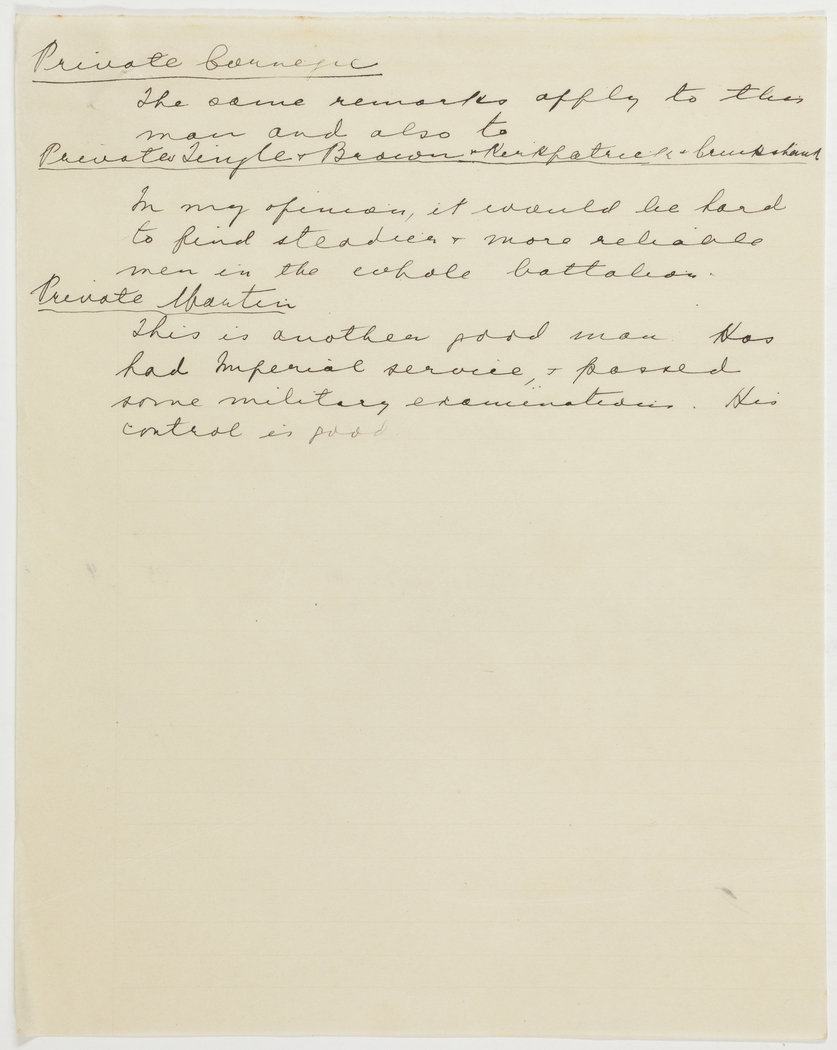 Private Carnegie
The same remarks apply to this
man and also to
Privates Tingle + Brown + Kirkpatrick + Cruikshank
In my opinion, it would be hard
to find steadier + more reliable
men in the whole battalion.
Private Martin
This is another good man. Has
had Imperial service, + passed
some military examinations. His
control is good